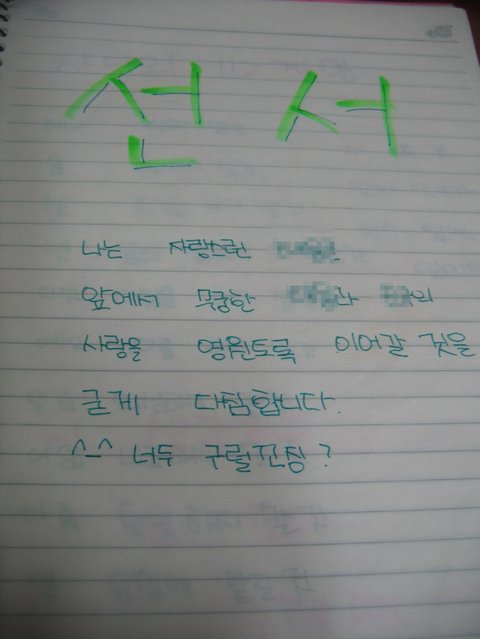 선 서
나는 자랑스런
앞에서 무궁한 과 의
사랑을 영원토록 이어갈 것을
굳게 다짐합니다.
^-^ 너두 구럴꼬징?